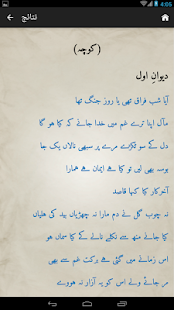 4:05
نتائج
(کوچہ)
دیوانِ اول
آیا شب فراق تھی یا روز جنگ تھا
مآل اپنا ترے غم میں خدا جانے کہ کیا ہو گا
دل کے سو ٹکڑے مرے پر سبھی نالاں یک جا
بوسہ بھی لیں تو کیا ہے ایمان ہے ہمارا
آخرکار کیا کہا قاصد
نہ چوب گل نے دم مارا نہ چھڑیاں بید کی ہلیاں
کیا جانئے منھ سے نکلے نالے کے کیا سماں ہو
اس زمانے میں گئی ہے برکت غم سے بھی
مر جائے ولے اس کو یہ آزار نہ ہووے